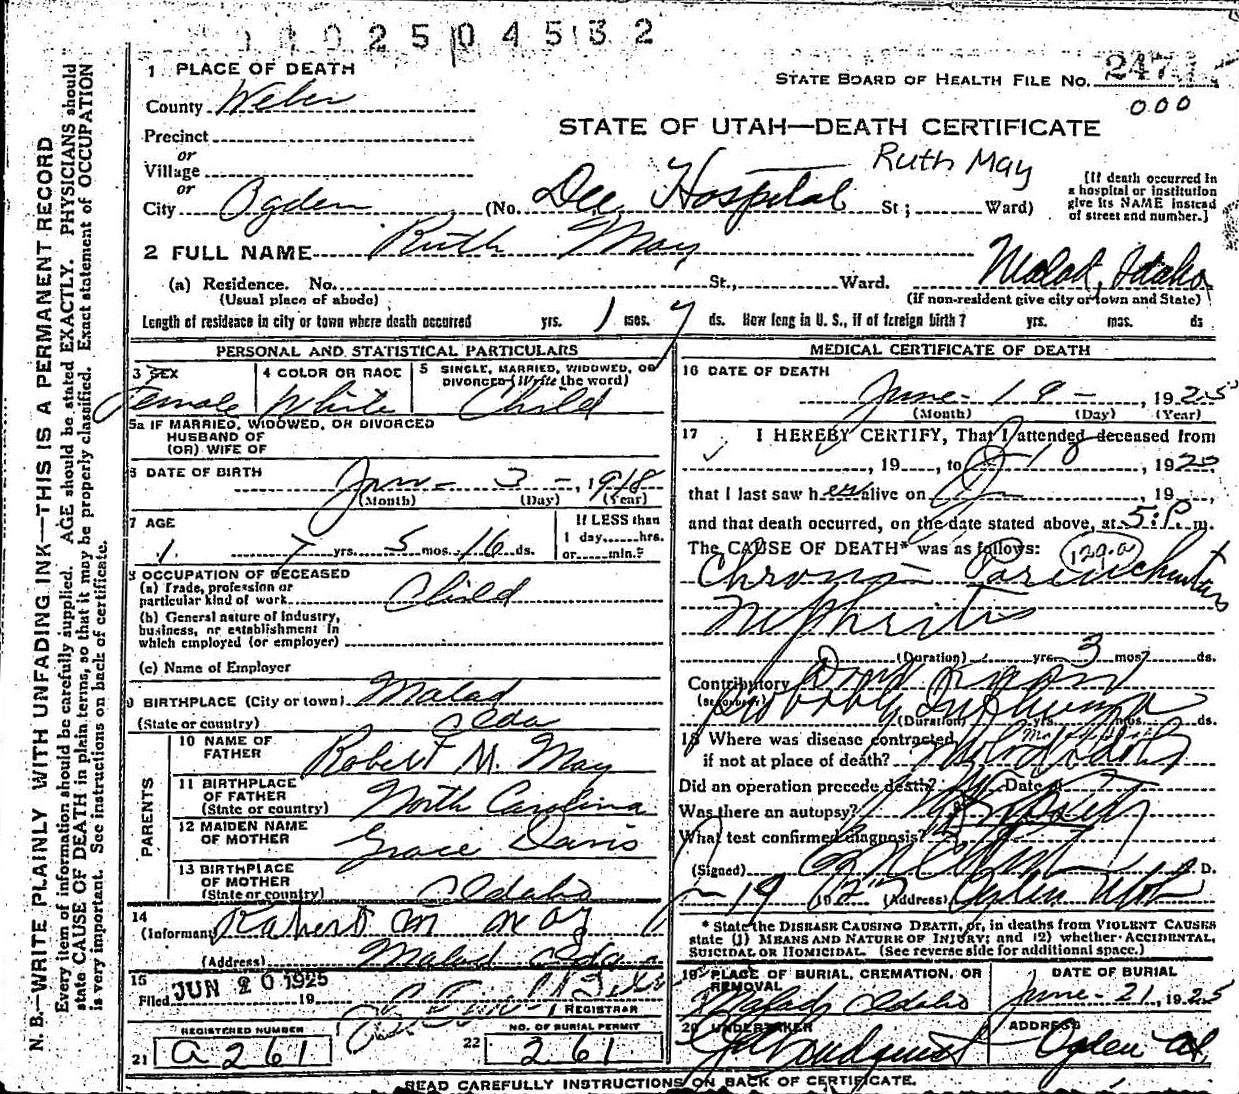 1 1 0 2 5 0 4 5 3 2
1 PLACE OF DEATH
STATE BOARD OF HEALTH FILE NO. 247
000
County Weber
STATE OF UTAH—DEATH CERTIFICATE
Precinct
or
Village
or
Ruth May
City Ogden (No. Dee Hospital St; Ward)
[If death occurred in
a hospital or institution
give its NAME instead
of street and number.]
2 FULL NAME Ruth May
(a) Residence. No. St., Ward. Malad, Idaho
(Usual place of abode) (If non-resident give city or town and State)
Length of residence in city or town where death occurred yrs. 1 mos. 7 ds. How long in U. S., if of foreign birth? yrs. mos. ds
PERSONAL AND STATISTICAL PARTICULARS
3 SEX Female
4 COLOR OR RACE White
5 SINGLE, MARRIED, WIDOWED, OR
DIVORCED (Write the word)
Child
5a IF MARRIED, WIDOWED, OR DIVORCED
HUSBAND OF
(OR) WIFE OF
6 DATE OF BIRTH
Jan - 3 -, 1918
(Month) (Day) (Year)
7 AGE
7 yrs. 5 mos. 16 ds.
If LESS than
1 day, hrs.
or min.?
8 OCCUPATION OF DECEASED
(a) Trade, profession or
particular kind of work Child
(b) General nature of industry,
business, or establishment in
which employed (or employer)
(c) Name of Employer
9 BIRTHPLACE (City or town) Malad
(State or country) Ida
PARENTS
10 NAME OF
FATHER Robert M. May
11 BIRTHPLACE
OF FATHER
(State or country) North Carolina
12 MAIDEN NAME
OF MOTHER Grace Davis
13 BIRTHPLACE
OF MOTHER
(State or country) Idaho
14
(Informant Robert M May
(Address) Malad Ida
15
Filed JUN 20 1925 19
REGISTRAR
REGISTERED NUMBER
21 a261
NO. OF BURIAL PERMIT
22 261
MEDICAL CERTIFICATE OF DEATH
16 DATE OF DEATH
June - 19 -, 1925
(Month) (Day) (Year)
17 I HEREBY CERTIFY, That I attended deceased from
, 19 , to , 192
that I last saw her alive on , 19 ,
and that death occurred, on the date stated above, at 5 P. m.
The CAUSE OF DEATH* was as follows: 129.a
Chronic Parenchymatous
Nephritis
(Duration) yrs. 3 mos. ds.
Contributory Dont Know
(SECONDARY) probably Influenza
(Duration) yrs. mos. ds.
18 Where was disease contracted
if not at place of death?
Did an operation precede death? Date of
Was there an autopsy?
What test confirmed diagnosis?
(Signed) M. D.
19 192 (Address) Ogden Utah
* State the DISEASE CAUSING DEATH, or, in deaths from VIOLENT CAUSES
state (1) MEANS AND NATURE OF INJURY; and (2) whether ACCIDENTAL,
SUICIDAL OR HOMICIDAL. (See reverse side for additional space.)
19 PLACE OF BURIAL, CREMATION, OR
REMOVAL
Malad, Idaho
DATE OF BURIAL
June - 21, 1925
20 UNDERTAKER
Lindquist
ADDRESS
Ogden Ut.
READ CAREFULLY INSTRUCTIONS ON BACK OF CERTIFICATE.
N. B.—WRITE PLAINLY WITH UNFADING INK—THIS IS A PERMANENT RECORD
Every item of information should be carefully supplied. AGE should be stated EXACTLY. PHYSICIANS should
state CAUSE OF DEATH in plain terms, so that it may be properly classified. Exact statement of OCCUPATION
is very important. See instructions on back of certificate.